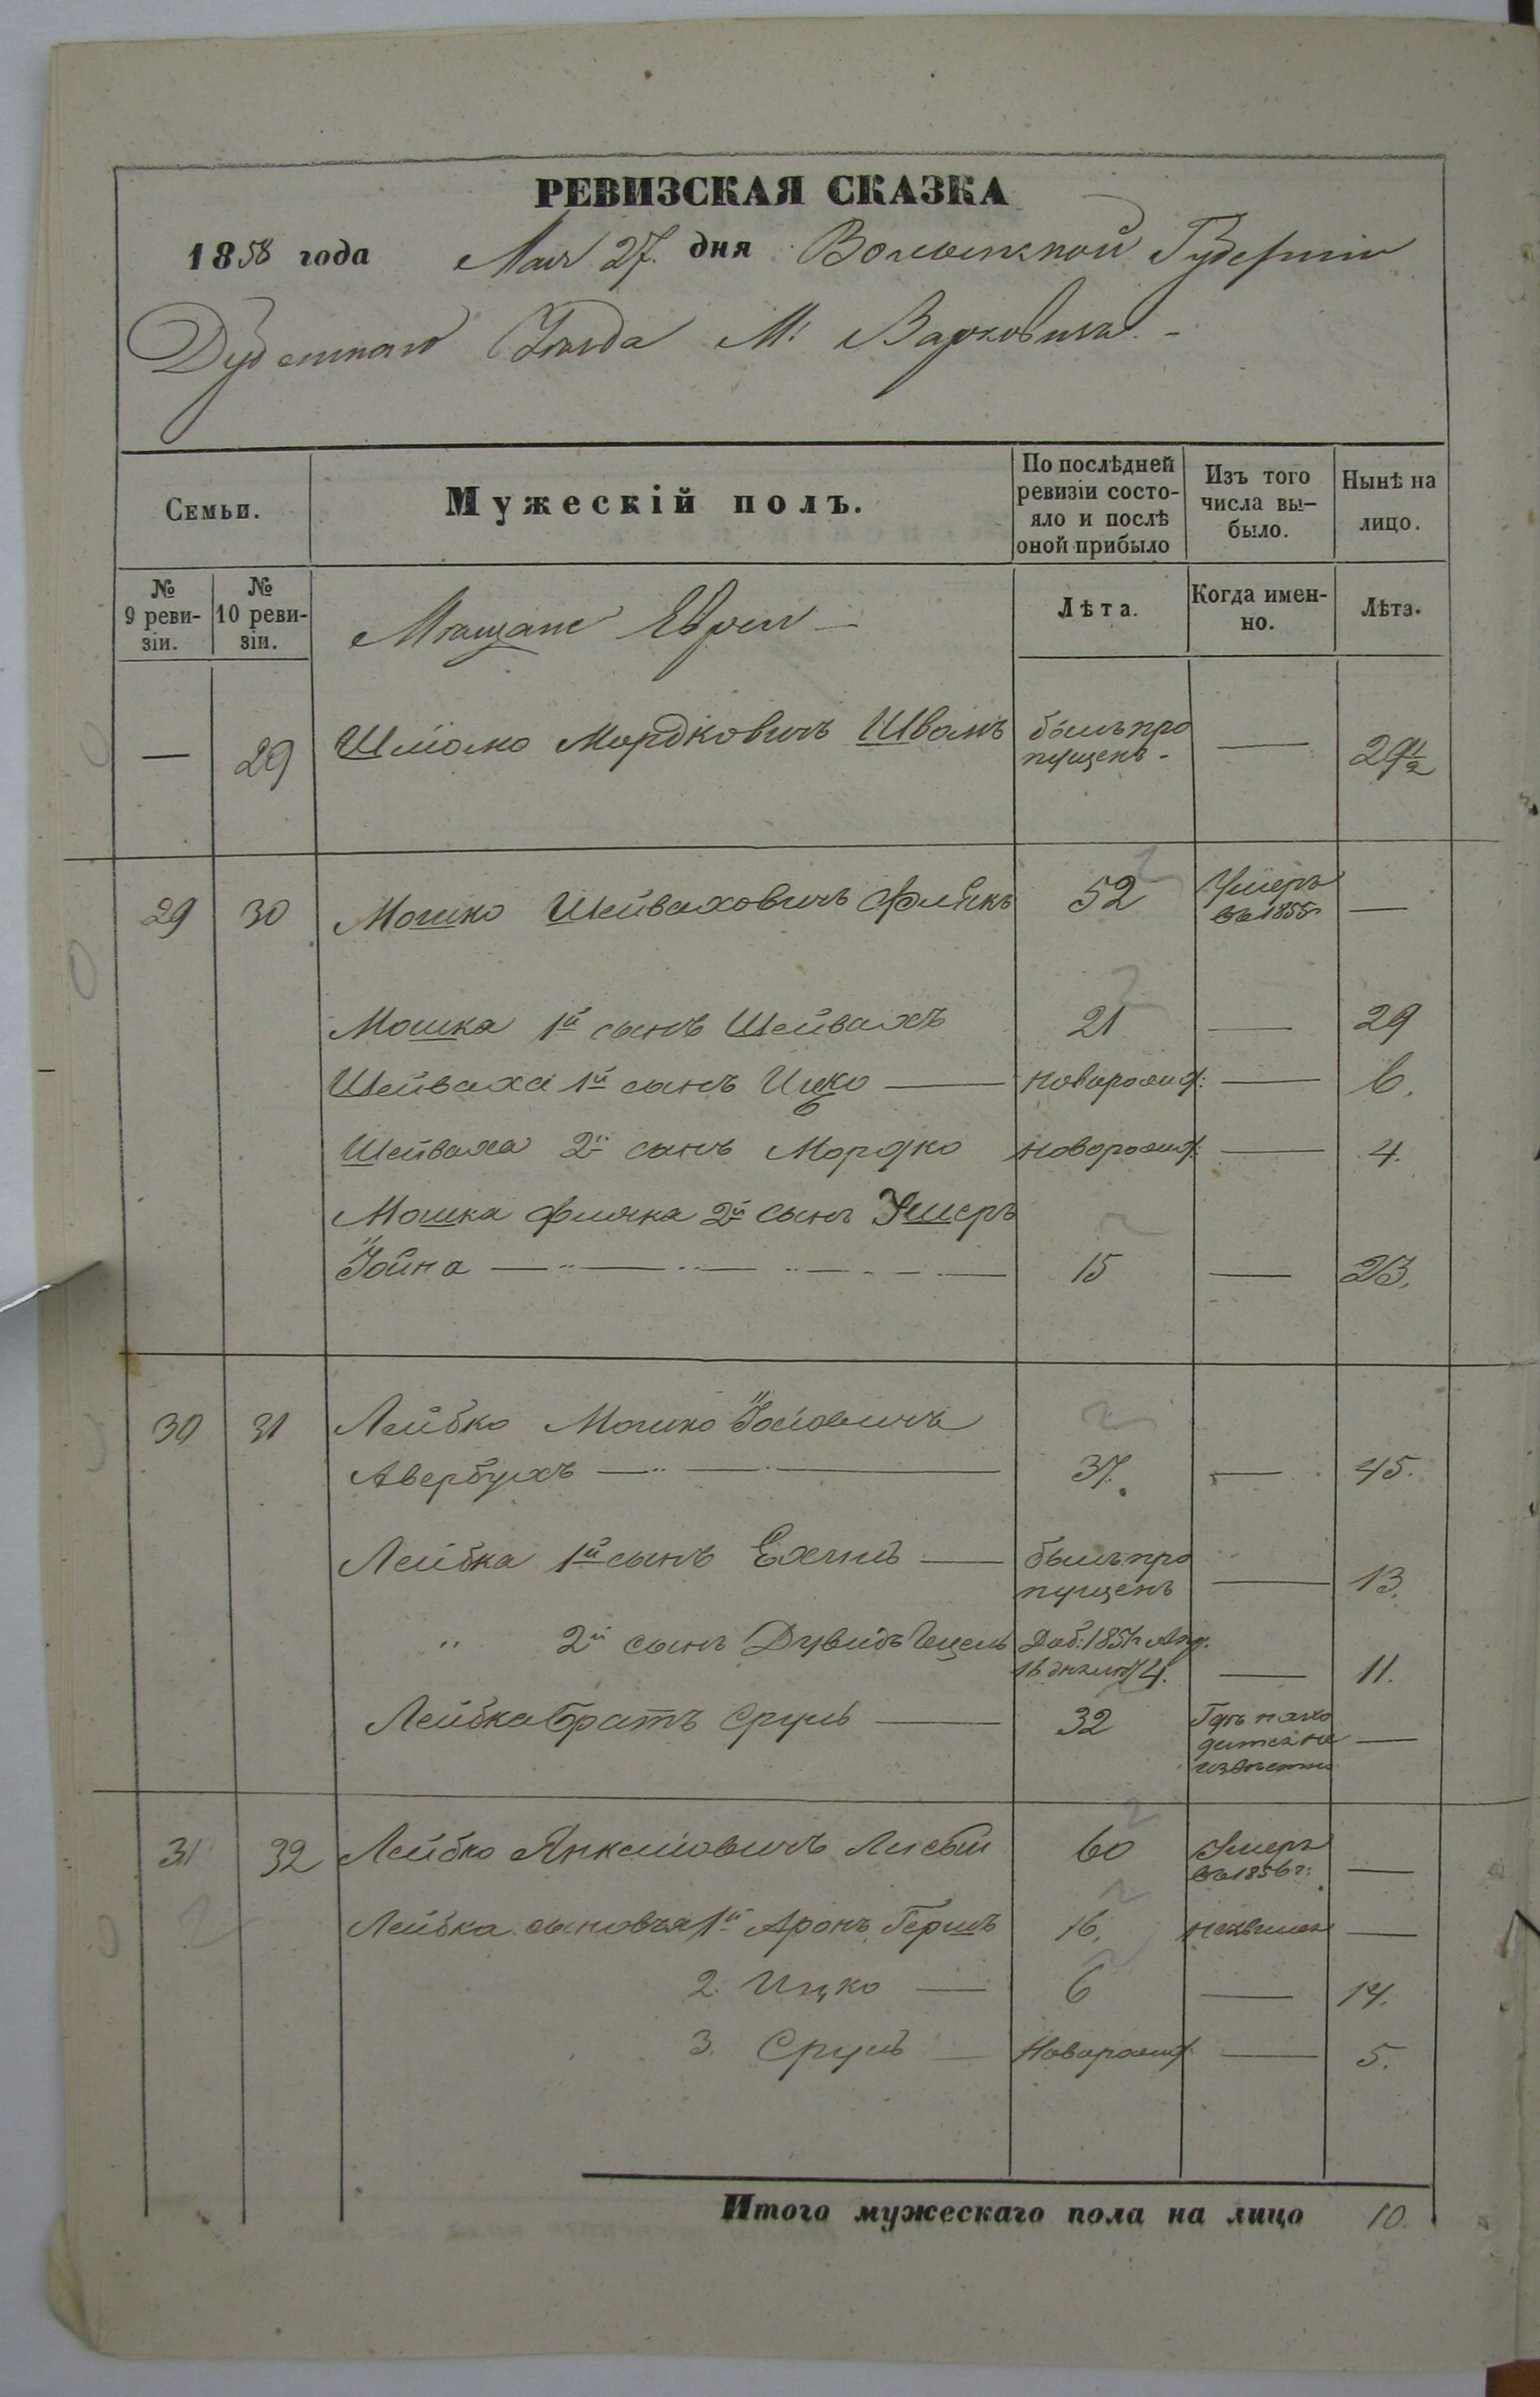 РЕВИЗСКАЯ СКАЗКА
1858 года Мая 27. дня Волынской Губерніи
Дубенскаго Уѣзда М. Варковичь. -
Семьи.
Мужескій полъ.
По послѣдней ревизіи состояло и послѣ оной прибыло
Изъ того числа вы-было.
Нынѣ на лицо.
№ 9 реви-зіи.
№ 10 реви-зіи.
Мѣщане Евреи —
Лѣта.
Когда имен-но.
Лѣта.
— 29 Шліома Мордковичъ Шванъ былъ про пущенъ - — 29 1/2
29 30 Мошко Шейваховичъ Флякъ 52 Умеръ въ 1855 —
Мошка 1й сынъ Шейвахъ 21 — 29
Шейваха 1й сынъ Ицко — новорожд: — 6.
Шейваха 2й сынъ Мордко новорожд: — 4.
Мошка Фляка 2й сынъ Умеръ
Іойна — 15 — 23.
30 31 Лейбко Мошко
Авербухъ — 37. — 45.
Лейбка 1й сынъ — былъ про пущенъ — 13.
" 2й сынъ Дувидъ — 11.
Лейбка братъ Сруль — 32 Гдѣ нахо дится не извѣстно —
31 32 Лейбко Янкелiовичъ 60 Умеръ въ 1856 г: —
Лейбка сыновья 1й Аронъ Гершъ 16. —
2. Ицко — 6 — 14.
3. Сруль — Новорожд: — 5.
Итого мужескаго пола на лицо 10.